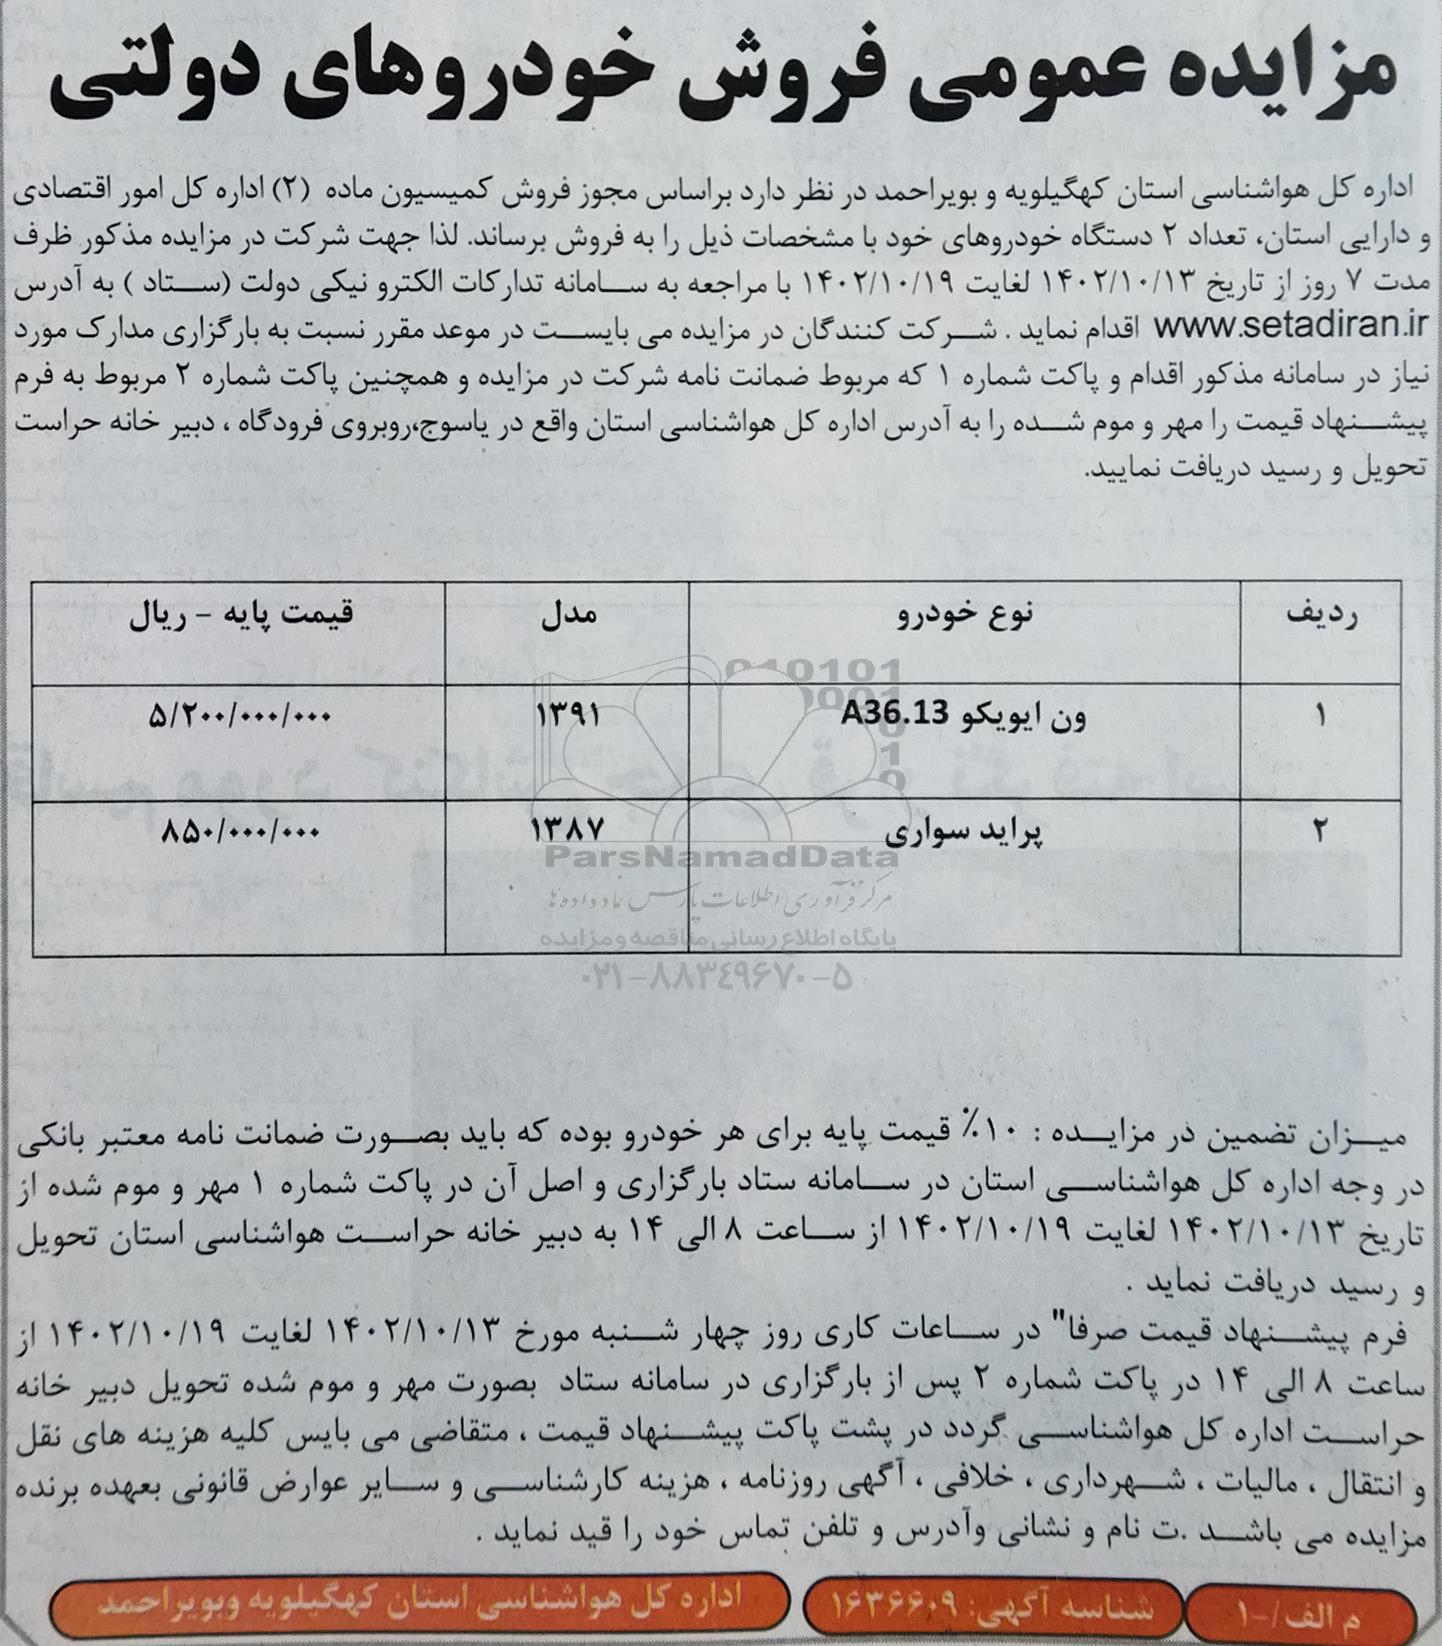 مزایده عمومی فروش خودروهای دولتی
اداره کل هواشناسی استان کهگیلویه و بویراحمد در نظر دارد براساس مجوز فروش کمیسیون ماده (۲) اداره کل امور اقتصادی
و دارایی استان، تعداد ۲ دستگاه خودروهای خود با مشخصات ذیل را به فروش برساند. لذا جهت شرکت در مزایده مذکور ظرف
مدت ۷ روز از تاریخ ۱۴۰۲/۱۰/۱۳ لغایت ۱۴۰۲/۱۰/۱۹ با مراجعه به سامانه تدارکات الکترو نیکی دولت (ستاد ) به آدرس
www.setadiran.ir اقدام نماید . شرکت کنندگان در مزایده می بایست در موعد مقرر نسبت به بارگزاری مدارک مورد
نیاز در سامانه مذکور اقدام و پاکت شماره ۱ که مربوط ضمانت نامه شرکت در مزایده و همچنین پاکت شماره ۲ مربوط به فرم
پیشنهاد قیمت را مهر و موم شده را به آدرس اداره کل هواشناسی استان واقع در یاسوج،روبروی فرودگاه ، دبیر خانه حراست
تحویل و رسید دریافت نمایید.
ردیف نوع خودرو مدل قیمت پایه – ریال
۱ ون ایویکو A36.13 ۱۳۹۱ ۵/۲۰۰/۰۰۰/۰۰۰
۲ پراید سواری ۱۳۸۷ ۸۵۰/۰۰۰/۰۰۰
ParsNamadData
مرکز فرآوری اطلاعات پارس نماد داده ها
پایگاه اطلاع رسانی مناقصه و مزایده
۰۲۱-۸۸۳۴۹۶۷۰-۵
میزان تضمین در مزایده : ۱۰٪ قیمت پایه برای هر خودرو بوده که باید بصورت ضمانت نامه معتبر بانکی
در وجه اداره کل هواشناسی استان در سامانه ستاد بارگزاری و اصل آن در پاکت شماره ۱ مهر و موم شده از
تاریخ ۱۴۰۲/۱۰/۱۳ لغایت ۱۴۰۲/۱۰/۱۹ از ساعت ۸ الی ۱۴ به دبیر خانه حراست هواشناسی استان تحویل
و رسید دریافت نماید .
فرم پیشنهاد قیمت صرفا" در ساعات کاری روز چهار شنبه مورخ ۱۴۰۲/۱۰/۱۳ لغایت ۱۴۰۲/۱۰/۱۹ از
ساعت ۸ الی ۱۴ در پاکت شماره ۲ پس از بارگزاری در سامانه ستاد بصورت مهر و موم شده تحویل دبیر خانه
حراست اداره کل هواشناسی گردد در پشت پاکت پیشنهاد قیمت ، متقاضی می بایس کلیه هزینه های نقل
و انتقال ، مالیات ، شهرداری ، خلافی ، آگهی روزنامه ، هزینه کارشناسی و سایر عوارض قانونی بعهده برنده
مزایده می باشد .ت نام و نشانی وآدرس و تلفن تماس خود را قید نماید .
م الف/-۱ شناسه آگهی: ۱۶۳۶۶۰۹ اداره کل هواشناسی استان کهگیلویه وبویراحمد